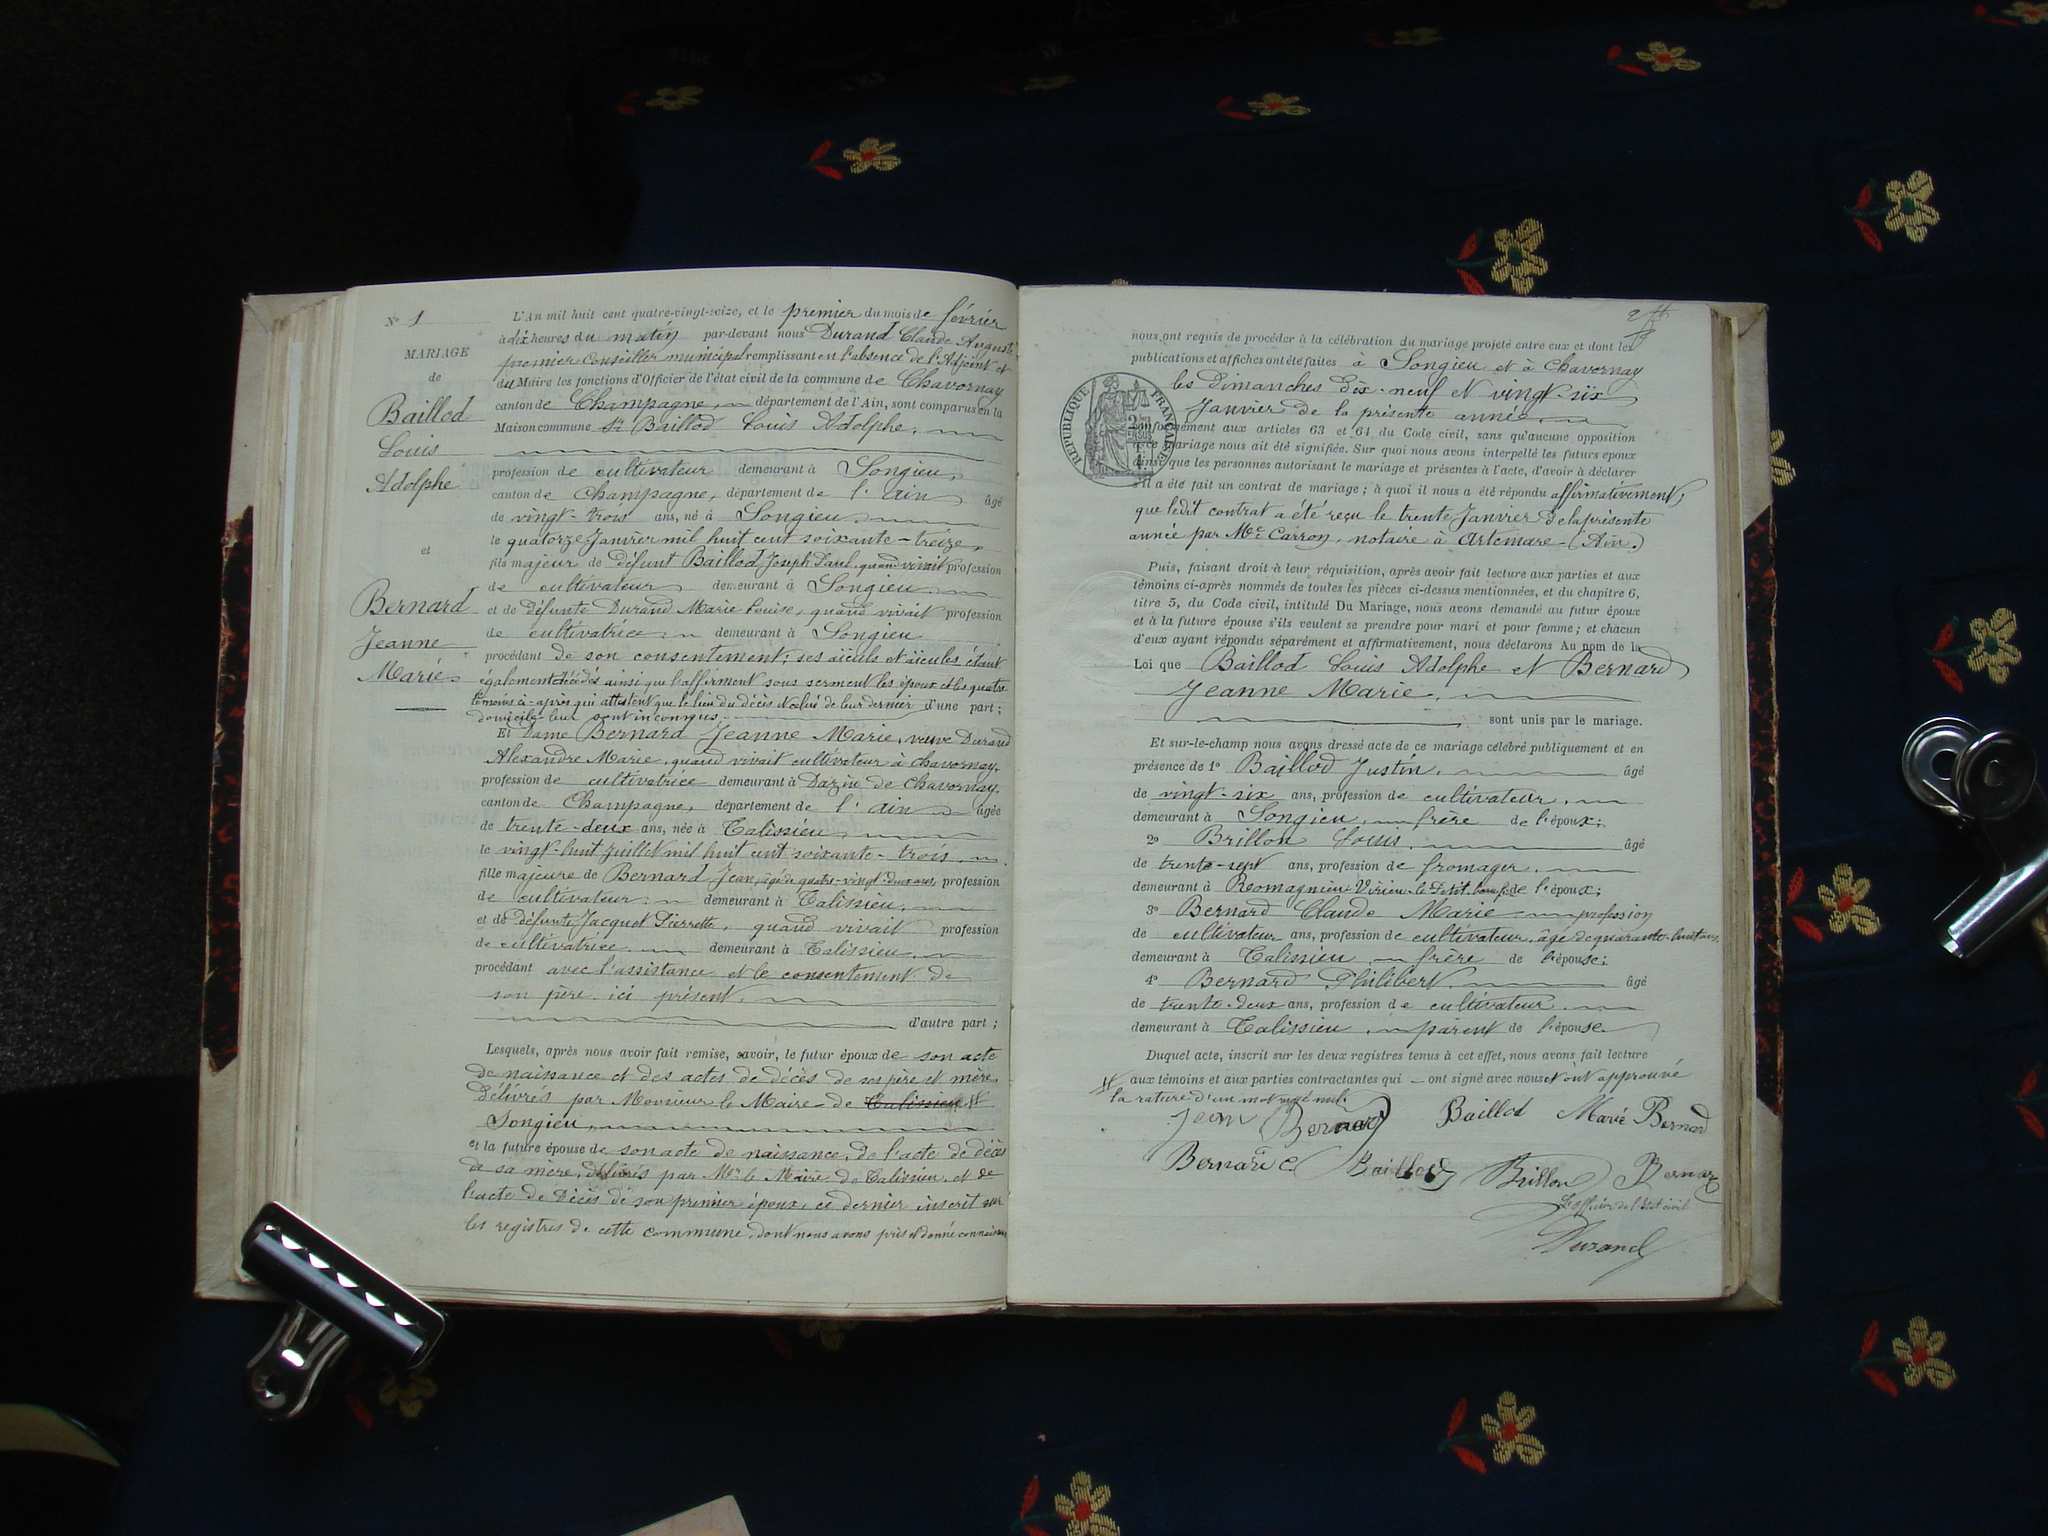 N° 1
MARIAGE
de
Baillod
Louis
Adolphe
et
Bernard
Jeanne
Marie
L'An mil huit cent quatre-vingt-seize, et le premier du mois de février
à dix heures du matin par-devant nous Durand Claude Auguste
premier Conseiller municipal remplissant en l'absence de l'Adjoint et
du Maire les fonctions d'Officier de l'état civil de la commune de Chavornay
canton de Champagne, département de l'Ain, sont comparus en la
Maison commune Sr Baillod Louis Adolphe,
profession de cultivateur demeurant à Songieu,
canton de Champagne, département de l'ain âgé
de vingt-trois ans, né à Songieu
le quatorze Janvier mil huit cent soixante-treize,
fils majeur de défunt Baillod Joseph Paul, quand vivait profession
de cultivateur demeurant à Songieu
et de défunte Durand Marie Louise, quand vivait profession
de cultivatrice demeurant à Songieu
procédant de son consentement; ses aïeuls et aïeules étant
également décédés ainsi que l'affirment sous serment les époux et les quatre
témoins ci-après qui attestent que le lieu du décès et celui de leur dernier d'une part;
domicile leur sont inconnus.
Et Dame Bernard Jeanne Marie, veuve Durand
Alexandre Marie, quand vivait cultivateur à Chavornay,
profession de cultivatrice demeurant à Dazin de Chavornay,
canton de Champagne, département de l'ain âgée
de trente-deux ans, née à Talissieu,
le vingt-huit Juillet mil huit cent soixante-trois
fille majeure de Bernard Jean, âgé de quatre-vingt-deux ans, profession
de cultivateur demeurant à Talissieu,
et de défunte Jacquet Pierrette, quand vivait profession
de cultivatrice demeurant à Talissieu,
procédant avec l'assistance et le consentement de
son père ici présent,
d'autre part;
Lesquels, après nous avoir fait remise, savoir, le futur époux de son acte
de naissance et des actes de décès de ses père et mère
délivrés par Monsieur le Maire de Talissieu et
Songieu,
et la future épouse de son acte de naissance, de l'acte de décès
de sa mère, délivrés par Mr le Maire de Talissieu, et de
l'acte de Décès de son premier époux, ce dernier inscrit sur
les registres de cette commune, dont nous avons pris et donné connaissance
nous ont requis de procéder à la célébration du mariage projeté entre eux et dont les
publications et affiches ont été faites à Songieu et à Chavornay
les Dimanches dix-neuf et vingt-six
Janvier de la présente année
RÉPUBLIQUE FRANÇAISE
conformément aux articles 63 et 64 du Code civil, sans qu'aucune opposition
à ce mariage nous ait été signifiée. Sur quoi nous avons interpellé les futurs époux
ainsi que les personnes autorisant le mariage et présentes à l'acte, d'avoir à déclarer
s'il a été fait un contrat de mariage; à quoi il nous a été répondu affirmativement,
que ledit contrat a été reçu le trente Janvier de la présente
année par Me Carron, notaire à Artemare (Ain.)
Puis, faisant droit à leur réquisition, après avoir fait lecture aux parties et aux
témoins ci-après nommés de toutes les pièces ci-dessus mentionnées, et du chapitre 6,
titre 5, du Code civil, intitulé Du Mariage, nous avons demandé au futur époux
et à la future épouse s'ils veulent se prendre pour mari et pour femme; et chacun
d'eux ayant répondu séparément et affirmativement, nous déclarons Au nom de la
Loi que Baillod Louis Adolphe et Bernard
Jeanne Marie,
sont unis par le mariage.
Et sur-le-champ nous avons dressé acte de ce mariage célébré publiquement et en
présence de 1° Baillod Justin, âgé
de vingt-six ans, profession de cultivateur,
demeurant à Songieu, frère de l'époux;
2° Brillon Louis, âgé
de trente-sept ans, profession de fromager,
demeurant à Romagnieu-Virieu-le-Petit, de l'époux;
3° Bernard Claude Marie profession
de cultivateur ans, profession de cultivateur, âgé de quarante-huit ans,
demeurant à Talissieu, frère de l'épouse;
4° Bernard Philibert âgé
de trente-deux ans, profession de cultivateur
demeurant à Talissieu, parent de l'épouse
Duquel acte, inscrit sur les deux registres tenus à cet effet, nous avons fait lecture
aux témoins et aux parties contractantes qui ont signé avec nous et ont approuvé
la rature d'un mot rayé nul.
Jean Bernard Baillod Marie Bernard
Bernard C. Baillod Brillon Bernard
L'officier de l'Etat civil
Durand